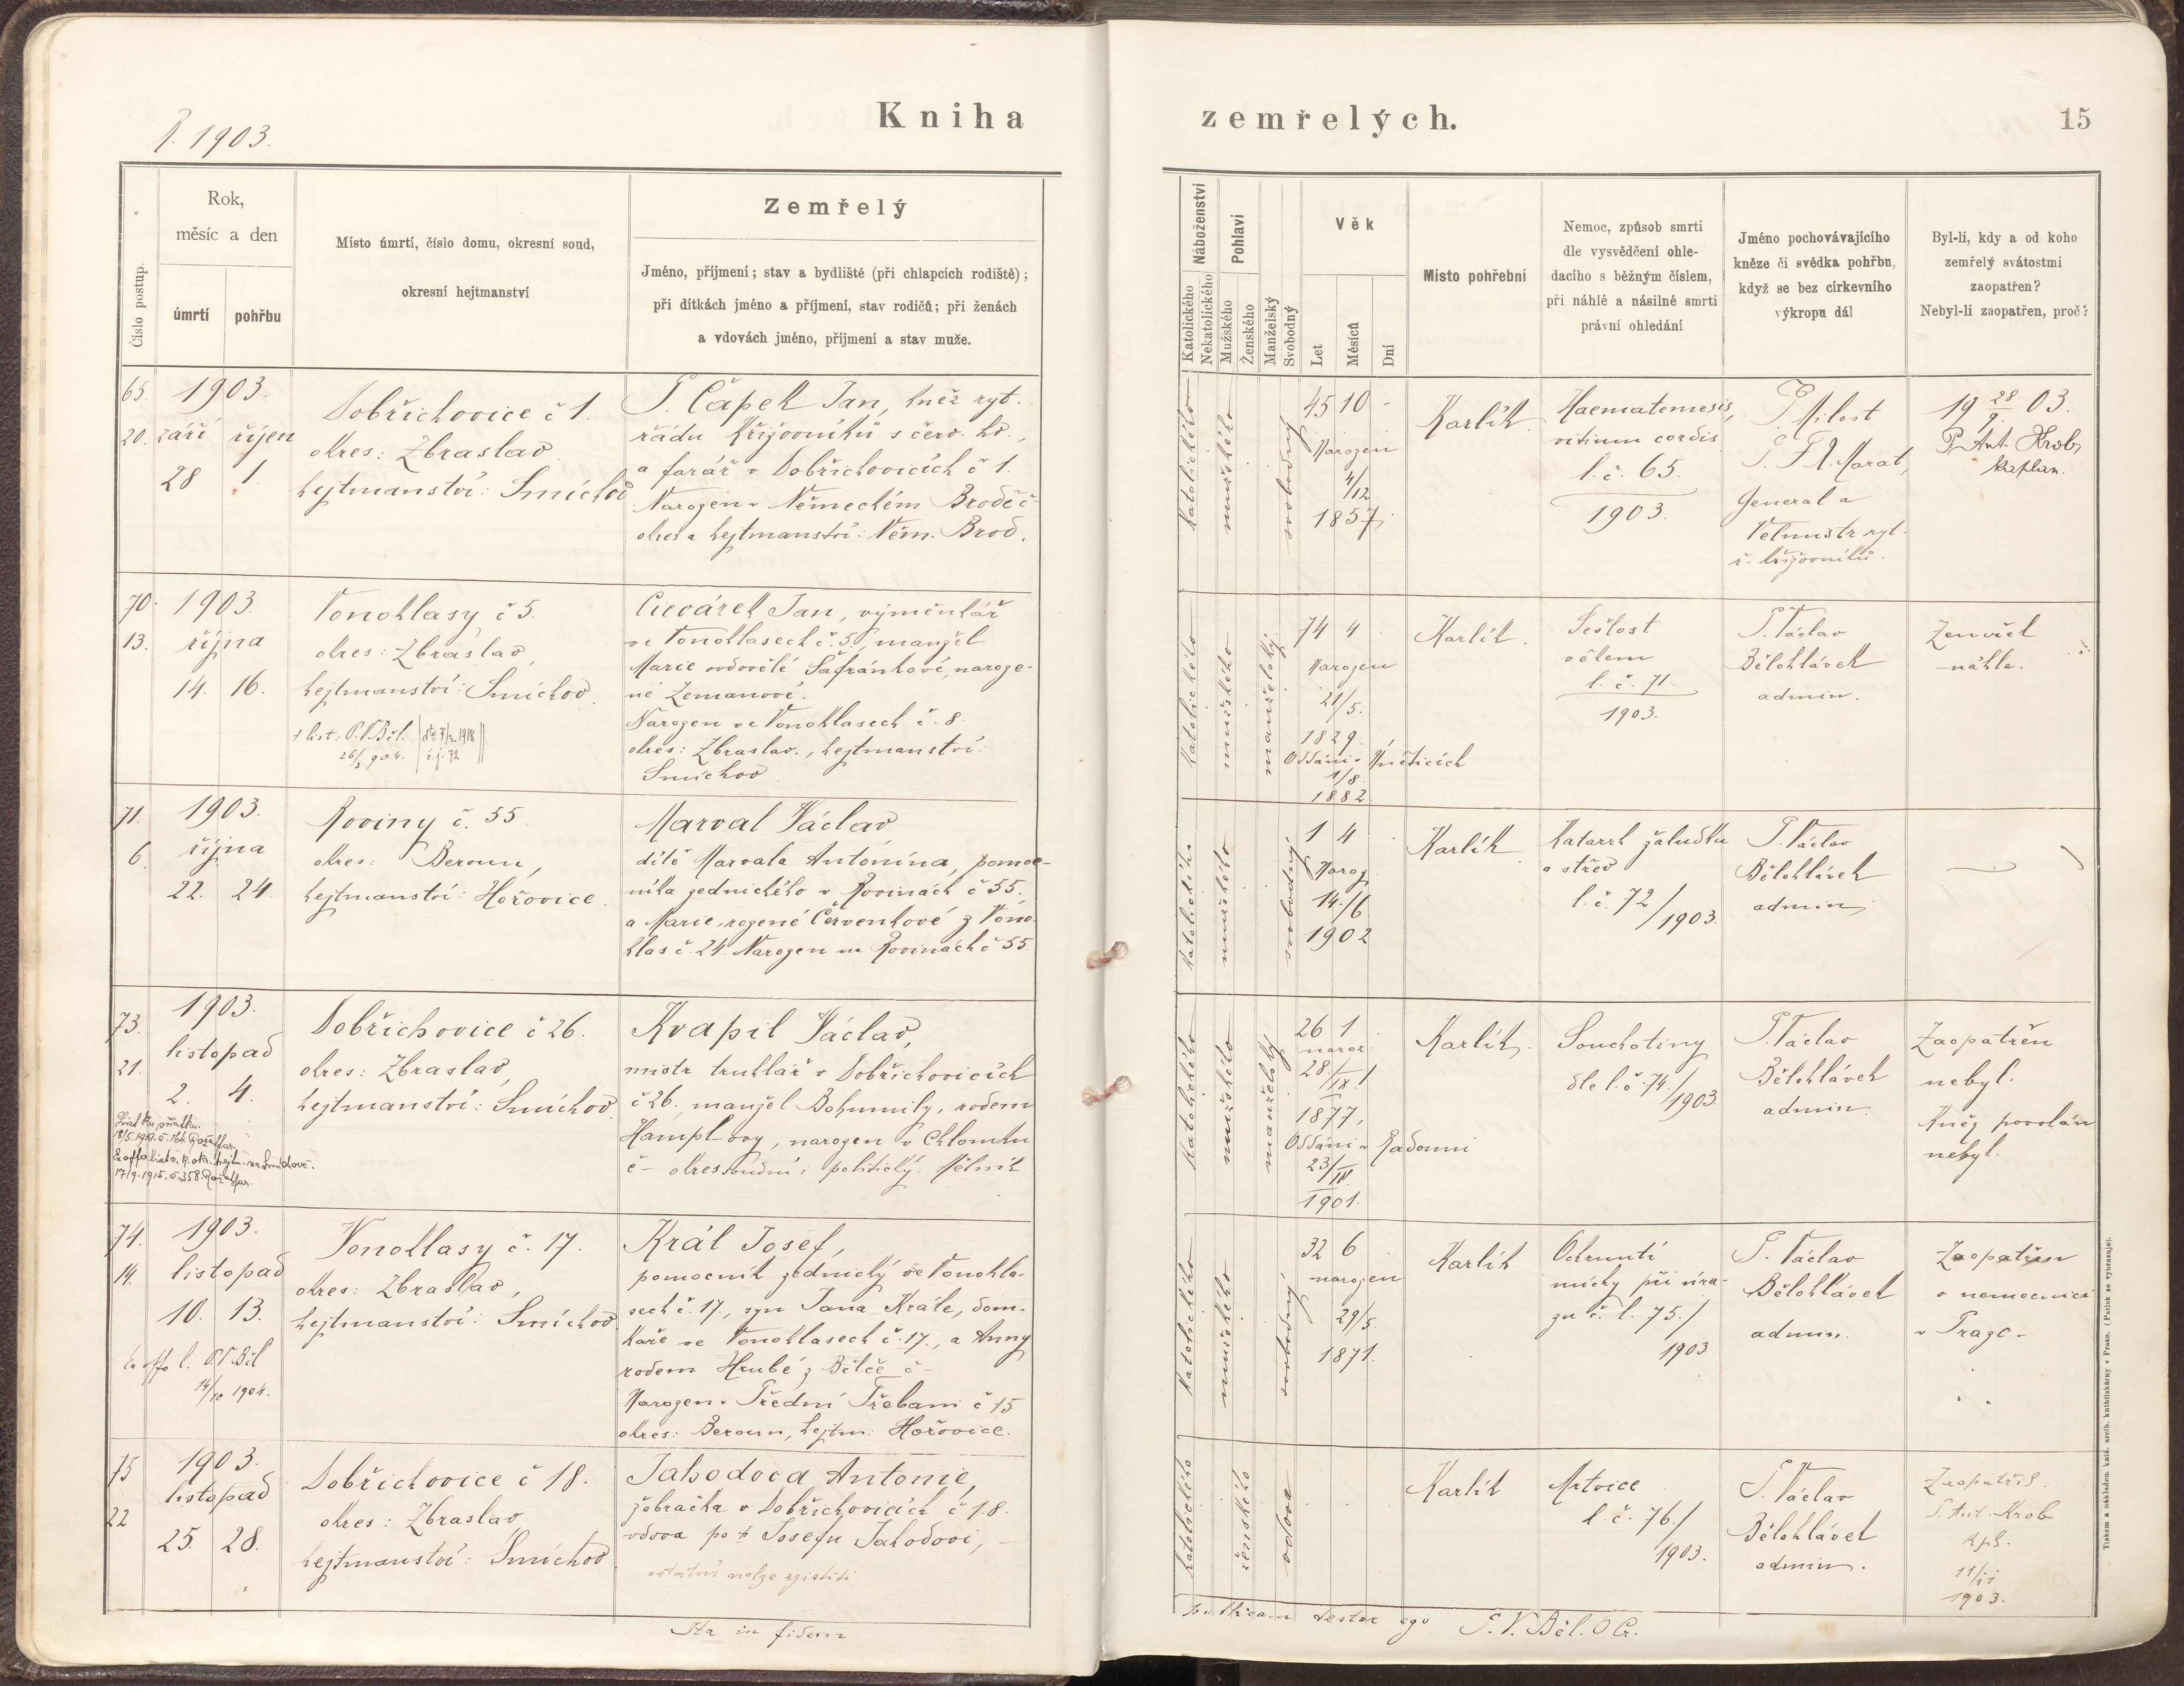 R. 1903.
Kniha zemřelých.
15
Číslo postup.
Rok,
měsíc a den
úmrtí
pohřbu
Místo úmrtí, číslo domu, okresní soud,
okresní hejtmanství
Zemřelý
Jméno, příjmení; stav a bydliště (při chlapcích rodiště);
při dítkách jméno a příjmení, stav rodičů; při ženách
a vdovách jméno, příjmení a stav muže.
Náboženství
Katolického
Nekatolického
Pohlaví
Mužského
Ženského
Manželský
Svobodný
Věk
Let
Měsíců
Dní
Místo pohřební
Nemoc, způsob smrti
dle vysvědčení ohle-
dacího s běžným číslem,
při náhlé a násilné smrti
právní ohledání
Jméno pochovávajícího
kněze či svědka pohřbu,
když se bez církevního
výkropu dál
Byl-li, kdy a od koho
zemřelý svátostmi
zaopatřen?
Nebyl-li zaopatřen, proč?
65.
20.
1903.
září říjen
28 1.
Dobřichovice č 1.
okres: Zbraslav
hejtmanství: Smíchov
P. Čapek Jan, kněz ryt.
řádu Křižovníků s červ. hv.,
a farář v Dobřichovicích č 1.
Narozen v Německém Brodě č
okres a hejtmanství: Něm. Brod.
katolického
mužského
svobodný
45 10 -
Narozen
4/12
1857
Karlík
Haematemesis,
vitium cordis
l. č. 65.
1903.
J. Milost
P. Fr. Marat,
General a
Velmistr ryt.
ř. křižovníků.
19 28/9 03.
P. Ant. Hrob,
kaplan.
70.
13.
1903.
října
14. 16.
Vonoklasy č 5.
okres: Zbraslav,
hejtmanství: Smíchov.
+ list: P.V.Běl.
26/3 904.
dto 7/3. 1918
č.j. 72
Cicvárek Jan, výměnkář
ve Vonoklasech č. 5., manžel
Marie ovdovělé Šafránkové, naroze-
né Zemanové.
Narozen ve Vonoklasech č. 8
okres: Zbraslav., hejtmanství:
Smíchov
katolického
mužského
manželský
74 4
Narozen
21/5.
1829.
Oddáni v Úněticích
1/8.
1882.
Karlík.
Sešlost
věkem
l. č. 71.
1903.
P. Václav
Bělohlávek
admin.
Zemřel
náhle.
71.
6.
1903.
října
22. 24.
Roviny č. 55
okres: Beroun,
hejtmanství: Hořovice.
Marval Václav
dítě Marvala Antonína, pomoc-
níka zednického v Rovinách č 55.
a Marie, rozené Červenkové z Vono-
klas č. 24. Narozen na Rovinách č 55.
katolického
mužského
svobodný
1 4
Naroz.
14./6
1902
Karlík
Katarrh žaludku
a střev
l. č. 72/1903.
P. Václav
Bělohlávek
admin.
73.
21.
1903.
listopad
2. 4.
Dobřichovice č 26.
okres: Zbraslav,
hejtmanství: Smíchov.
Kvapil Václav,
mistr truhlář v Dobřichovicích
č 26. manžel Bohumily, rodem
Hampl-ovy, narozen v Chlomku
č - okres soudní i politický: Mělník
katolického
mužského
manželský
26 1
naroz.
28./IX.
1877,
Oddáni v Radouni
23/IV.
1901.
Karlík.
Souchotiny
dle l. č. 74./1903.
P. Václav
Bělohlávek
admin.
Zaopatřen
nebyl.
Kněz povolán
nebyl.
74.
14.
1903.
listopad
10. 13.
Ex offo l. P.V.Běl
14/10 1904.
Vonoklasy č. 17.
okres: Zbraslav,
hejtmanství: Smíchov
Král Josef,
pomocník zednický ve Vonokla-
sech č. 17., syn Jana Krále, dom-
kaře ve Vonoklasech č. 17., a Anny
rodem Hrubé z Bělče č -
Narozen v Přední Třebani č 15
okres: Beroun, hejtm: Hořovice.
katolického
mužského
svobodný
32 6
narozen
29/5.
1871.
Karlík
Ochrnutí
míchy při úra-
zu č. l. 75./
1903
P. Václav
Bělohlávek
admin.
Zaopatřen
v nemocnici
v Praze -
75
22
1903.
listopad
25. 28.
Dobřichovice č 18.
okres: Zbraslav
hejtmanství: Smíchov
Jahodova Antonie,
žebračka v Dobřichovicích č 18.
vdova po † Josefu Jahodovi, -
ostatní nelze zjistiti
katolického
ženského
vdova
Karlík
Mrtvice
l. č. 76./
1903.
P. Václav
Bělohlávek
admin.
Zaopatřil
P. Ant. Hrob
kpl.
11/11
1903.
Ita in fidem publicam testor ego P. V. Běl. O Cr.
Tiskem a nákladem kníž. arcib. knihtiskárny v Praze. (Patisk se vyhrazuje).